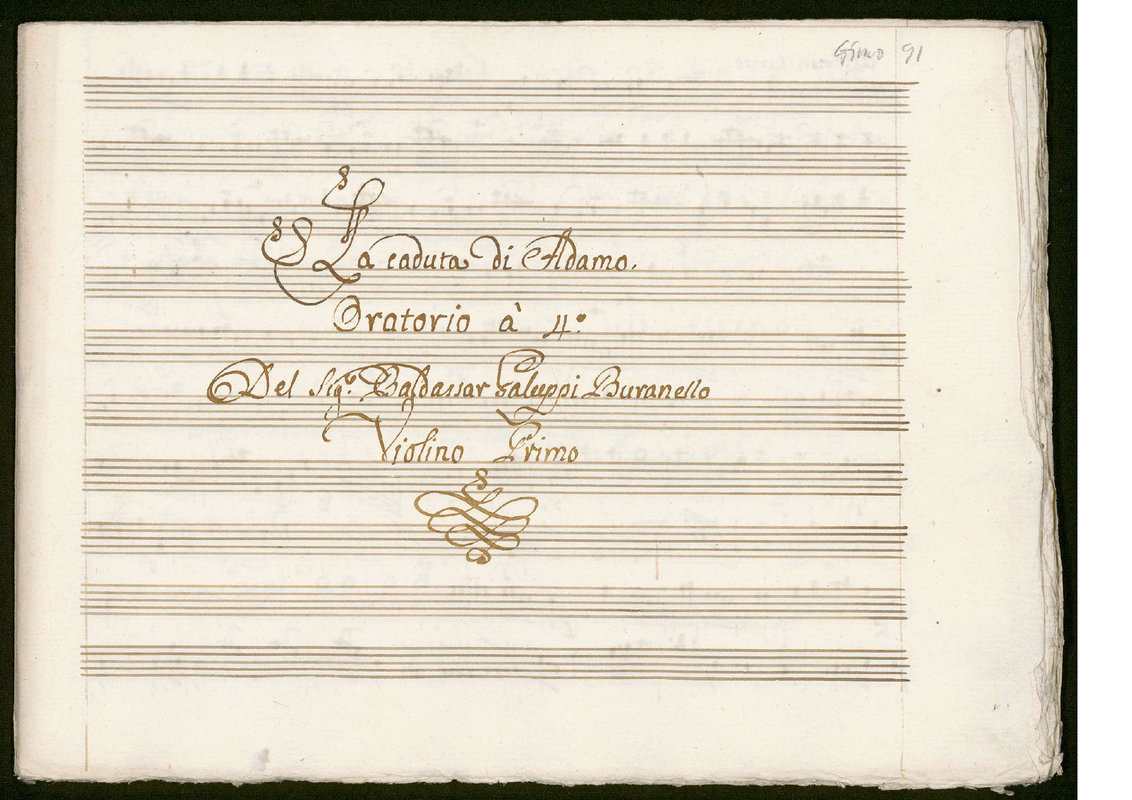 Gimo 91
La caduta di Adamo.
Oratorio à 4.º
Del Sig.º Baldassar Galuppi Buranello
Violino Primo